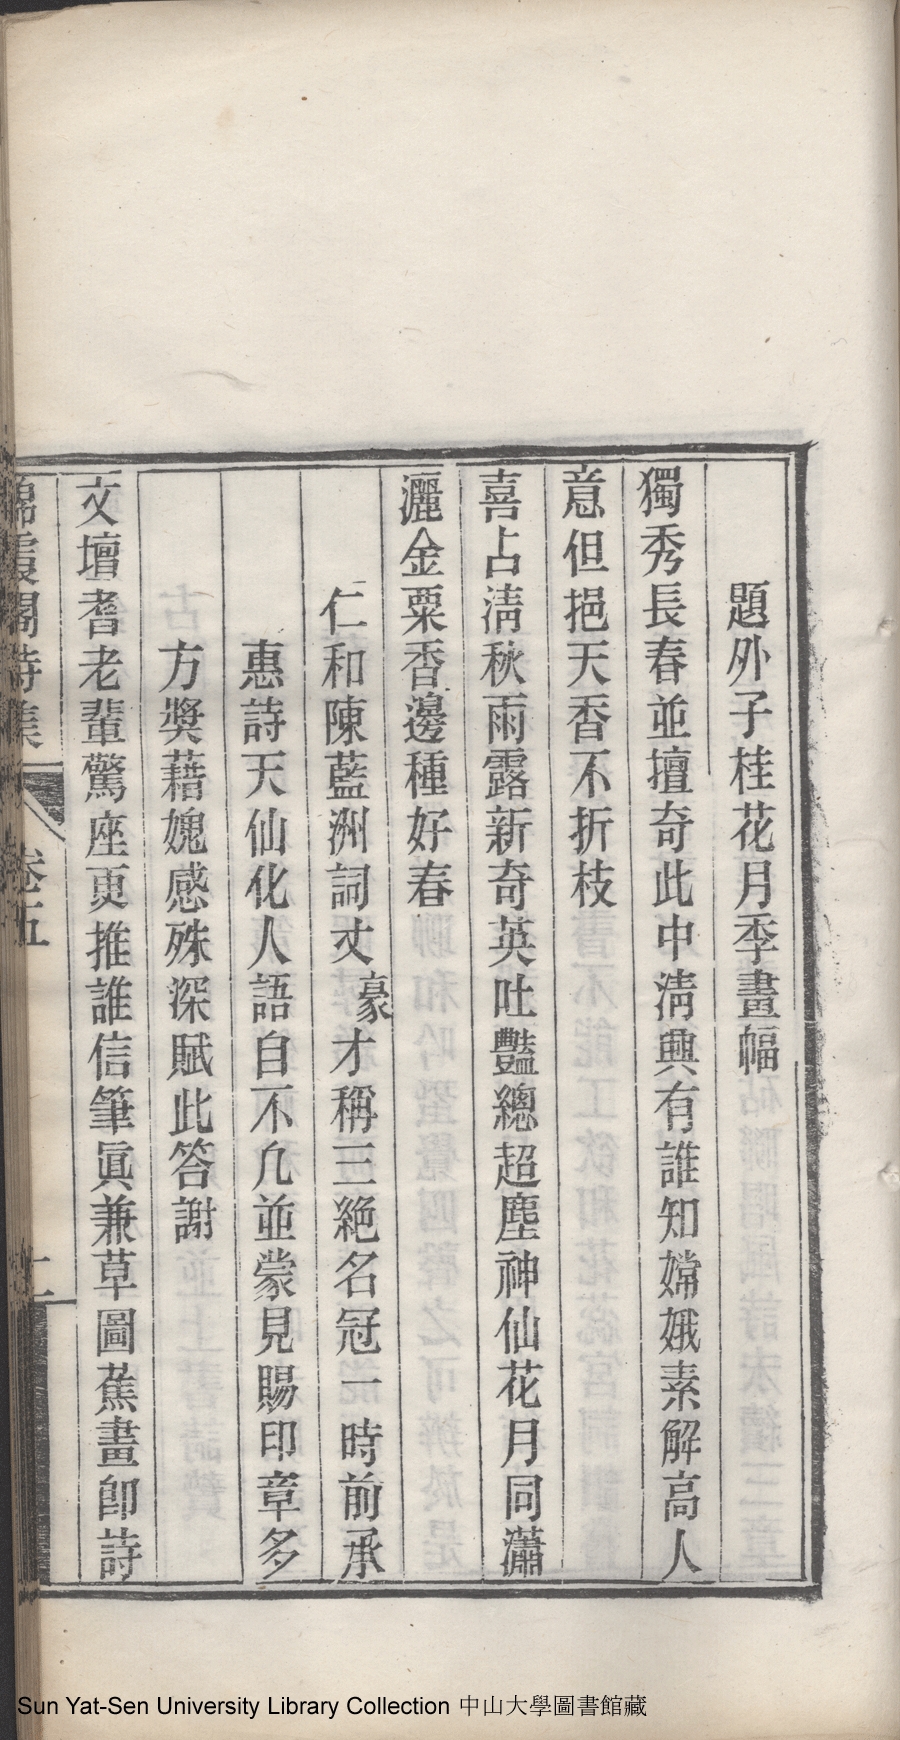 題外子桂花月季畫幅
獨秀長春並擅奇此中淸興有誰知嫦娥素解高人
意但挹天香不折枝
喜占淸秋雨露新奇英吐豔總超塵神仙花月同瀟
灑金粟香邊種好春
仁和陳藍洲詞丈豪才稱三絶名冠一時前承
惠詩天仙化人語自不凡並蒙見賜印章多
方奬藉媿感殊深賦此答謝
文壇耆老輩驚座更推誰信筆眞兼草圖蕉畫卽詩
錦霞閣詩集 卷五
Sun Yat-Sen University Library Collection 中山大學圖書館藏